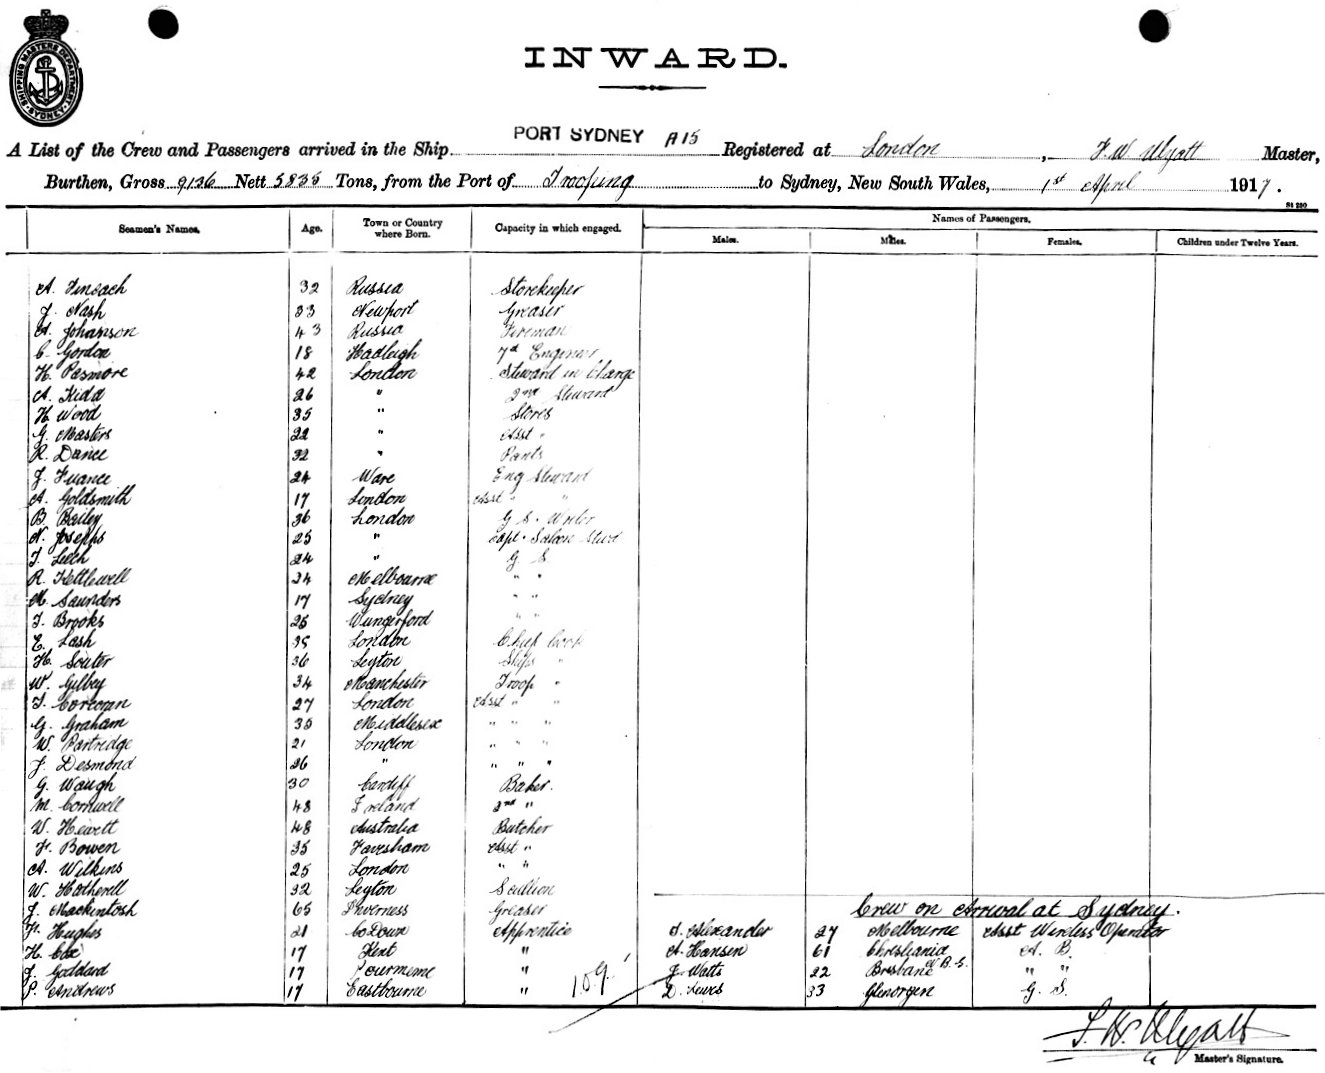 SHIPPING MASTERS DEPARTMENT SYDNEY
INWARD.
A List of the Crew and Passengers arrived in the Ship PORT SYDNEY A15 Registered at London, F W Wyatt Master,
Burthen, Gross 9136 Nett 5835 Tons, from the Port of Trooping to Sydney, New South Wales, 1st April 1917.
Seamen's Names. Age. Town or Country where Born. Capacity in which engaged. Names of Passengers.
Males. Males. Females. Children under Twelve Years.
A. 32 Russia Storekeeper
J. Nash 33 Newport Greaser
A. Johanson 43 Russia Fireman
C. Gordon 18 Hadleigh 7th Engineer
H. Pasmore 42 London Steward in Charge
A. Kidd 26 " 2nd Steward
H. Wood 35 " Stores
G. Masters 22 " Asst "
R. Dance 32 "
J. 24 Ware Eng Steward
A. Goldsmith 17 London Asst " "
B. Bailey 36 London G S. Writer
N. Josephs 25 " Capt. Saloon Stwd
T. Leech 24 " G S
R. Kettlewell 34 Melbourne " "
M. Saunders 17 Sydney " "
T. Brooks 26 " "
E. Lash 35 London Chief Cook
H. Souter 36 Leyton Ships "
W. Gilbey 34 Manchester Troop "
T. Corcoran 27 London Asst " "
G. Graham 35 Middlesex " " "
W. Partridge 21 London " " "
J. Desmond 26 " " " "
G. Waugh 30 Cardiff Baker.
M. Cornwell 48 Ireland 2nd "
W. Hewett 48 Australia Butcher
F. Bowen 35 Faversham Asst "
A. Wilkins 25 London " "
W. Hatherell 32 Leyton Scullion
J. Mackintosh 65 Inverness Greaser Crew on Arrival at Sydney.
F. Hughes 21 Co Down Apprentice Alexander 27 Melbourne Asst Wireless Operator
H. Cox 17 Kent " A. Hansen 61 Christiania A. B.
J. Goddard 17 " J. Watts 22 Brisbane " "
P. Andrews 17 Eastbourne " 109 D. Lewis 33 G. S.
F. W. Wyatt
Master's Signature.